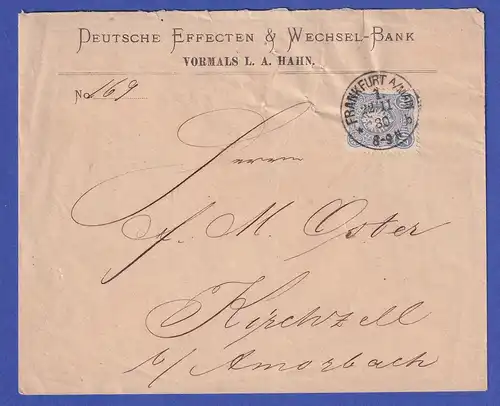 DEUTSCHE EFFECTEN & WECHSEL-BANK
VORMALS L. A. HAHN.
No 169
FRANKFURT A/MAIN
1.
22 11
80
8-9 N
Herrn
J. M. Oster
Kirchzell
b/ Amorbach